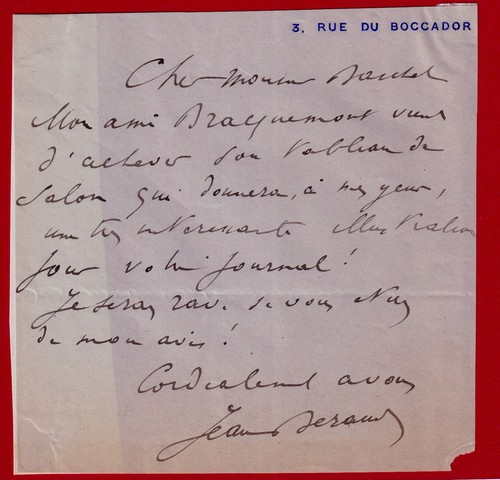 3, RUE DU BOCCADOR
Cher monsieur Baschet
Mon ami Bracquemont vient
d'achever son tableau de
Salon qui donnera, à mes yeux,
une très intéressante illustration
pour votre journal !
Je serais ravi si vous étiez
de mon avis !
Cordialement a vous
Jean Béraud